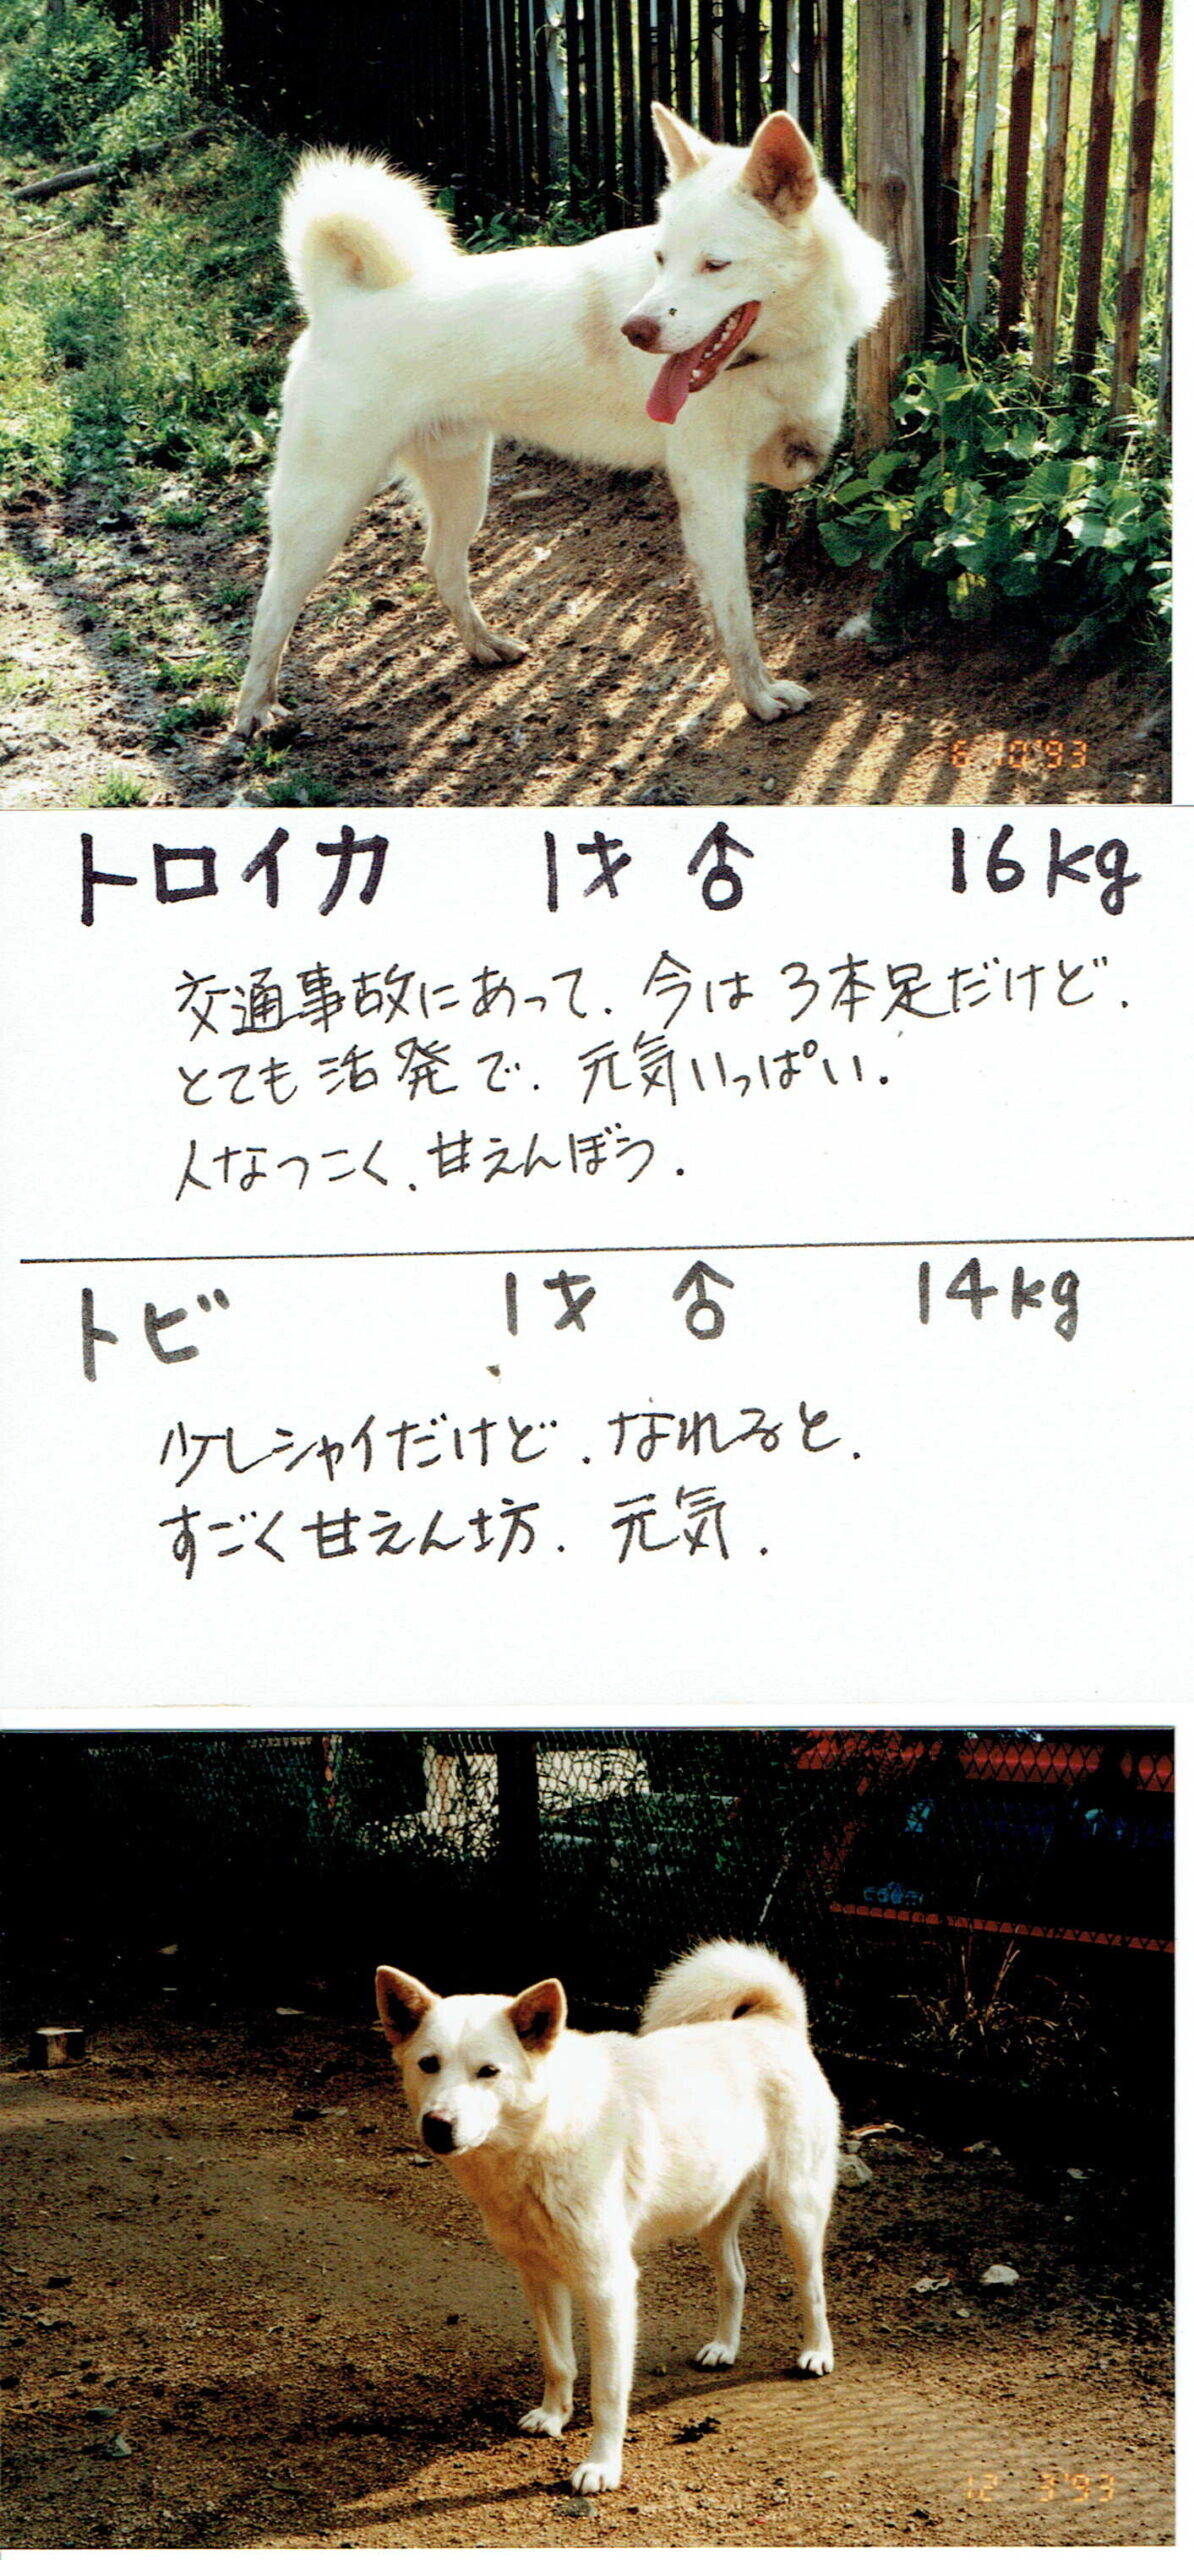 6 10 '93
トロイカ 1才 ♂ 16kg
交通事故にあって、今は3本足だけど、
とても活発で、元気いっぱい。
人なつこく、甘えんぼう。
トビ 1才 ♂ 14kg
少しシャイだけど、なれると、
すごく甘えん坊。元気。
12 3 '93